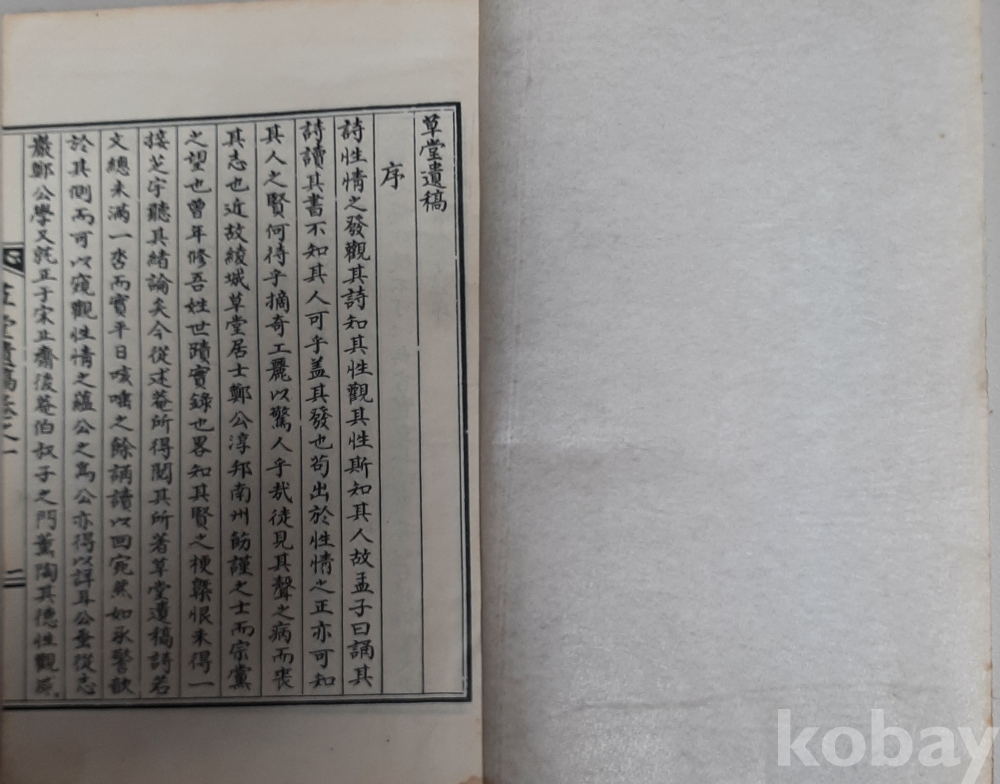 草堂遺稿
序
詩性情之發觀其詩知其性觀其性斯知其人故孟子曰誦其
詩讀其書不知其人可乎盖其發也苟出於性情之正亦可知
其人之賢何待乎摘奇工麗以驚人乎哉徒見其聲之病而喪
其志也近故綾城草堂居士鄭公淳邦南州飭謹之士而宗黨
之望也曾年修吾姓世蹟實錄也畧知其賢之梗槩恨未得一
接芝宇聽其緒論矣今從述菴所得閱其所著草堂遺稿詩若
文總未滿一沓而實平日咳唾之餘誦讀以回宛然如承警欬
於其側而可以窺觀性情之蘊公之爲公亦得以詳耳公蚤從志
巖鄭公學又就正于宋止齋後菴伯叔子之門薰陶其德性觀
草堂遺稿卷之一
kobay